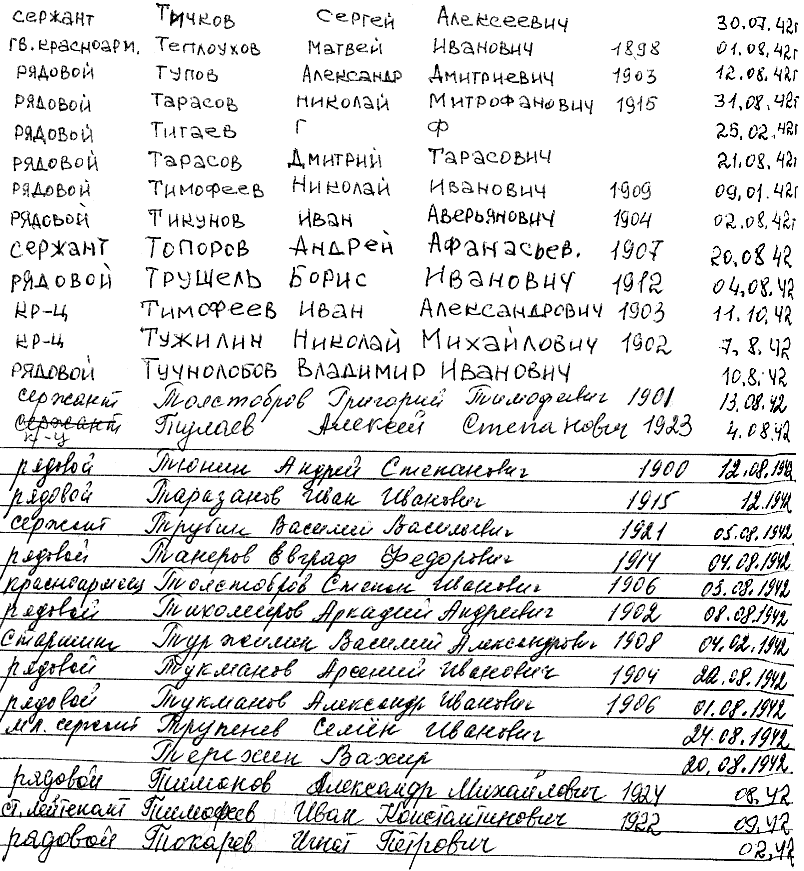 сержант Тичков Сергей Алексеевич 30.07.42г
гв.красноарм. Теплоухов Матвей Иванович 1898 01.08.42г
рядовой Тупов Александр Дмитриевич 1903 12.08.42г
рядовой Тарасов Николай Митрофанович 1915 31.08.42г
рядовой Тигаев Г Ф 25.02.42г
рядовой Тарасов Дмитрий Тарасович 21.08.42г
рядовой Тимофеев Николай Иванович 1909 09.01.42г
рядовой Тикунов Иван Аверьянович 1904 02.08.42г
сержант Топоров Андрей Афанасьев. 1907 20.08 42
рядовой Трушель Борис Иванович 1912 04.08.42
кр-ц Тимофеев Иван Александрович 1903 11.10.42
кр-ц Тужилин Николай Михайлович 1902 7.8.42
рядовой Тучнолобов Владимир Иванович 10.8.42
сержант Толстобров Григорий Тимофеевич 1901 13.08.42
сержант Тулаев Алексей Степанович 1923 4.08.42
кр-ц
рядовой Тюнин Андрей Степанович 1900 12.08.1942
рядовой Таразанов Иван Иванович 1915 12.1942
сержант Трубин Василий Васильевич 1921 05.08.1942
рядовой Танеров Евграф Федорович 1914 04.08.1942
красноармеец Толстобров Степан Иванович 1906 03.08.1942
рядовой Тихомиров Аркадий Андреевич 1902 08.08.1942
старшина Василий Александрович 1908 04.02.1942
рядовой Тукманов Арсений Иванович 1904 22.08.1942
рядовой Тукманов Александр Иванович 1906 01.08.1942
мл. сержант Трупенев Семён Иванович 24.08.1942
Терехин Вахир 20.08.1942
рядовой Тимонов Александр Михайлович 1924 08.42
ст.лейтенант Тимофеев Иван Константинович 1922 09.42
рядовой Токарев Игнат Петрович 02.42